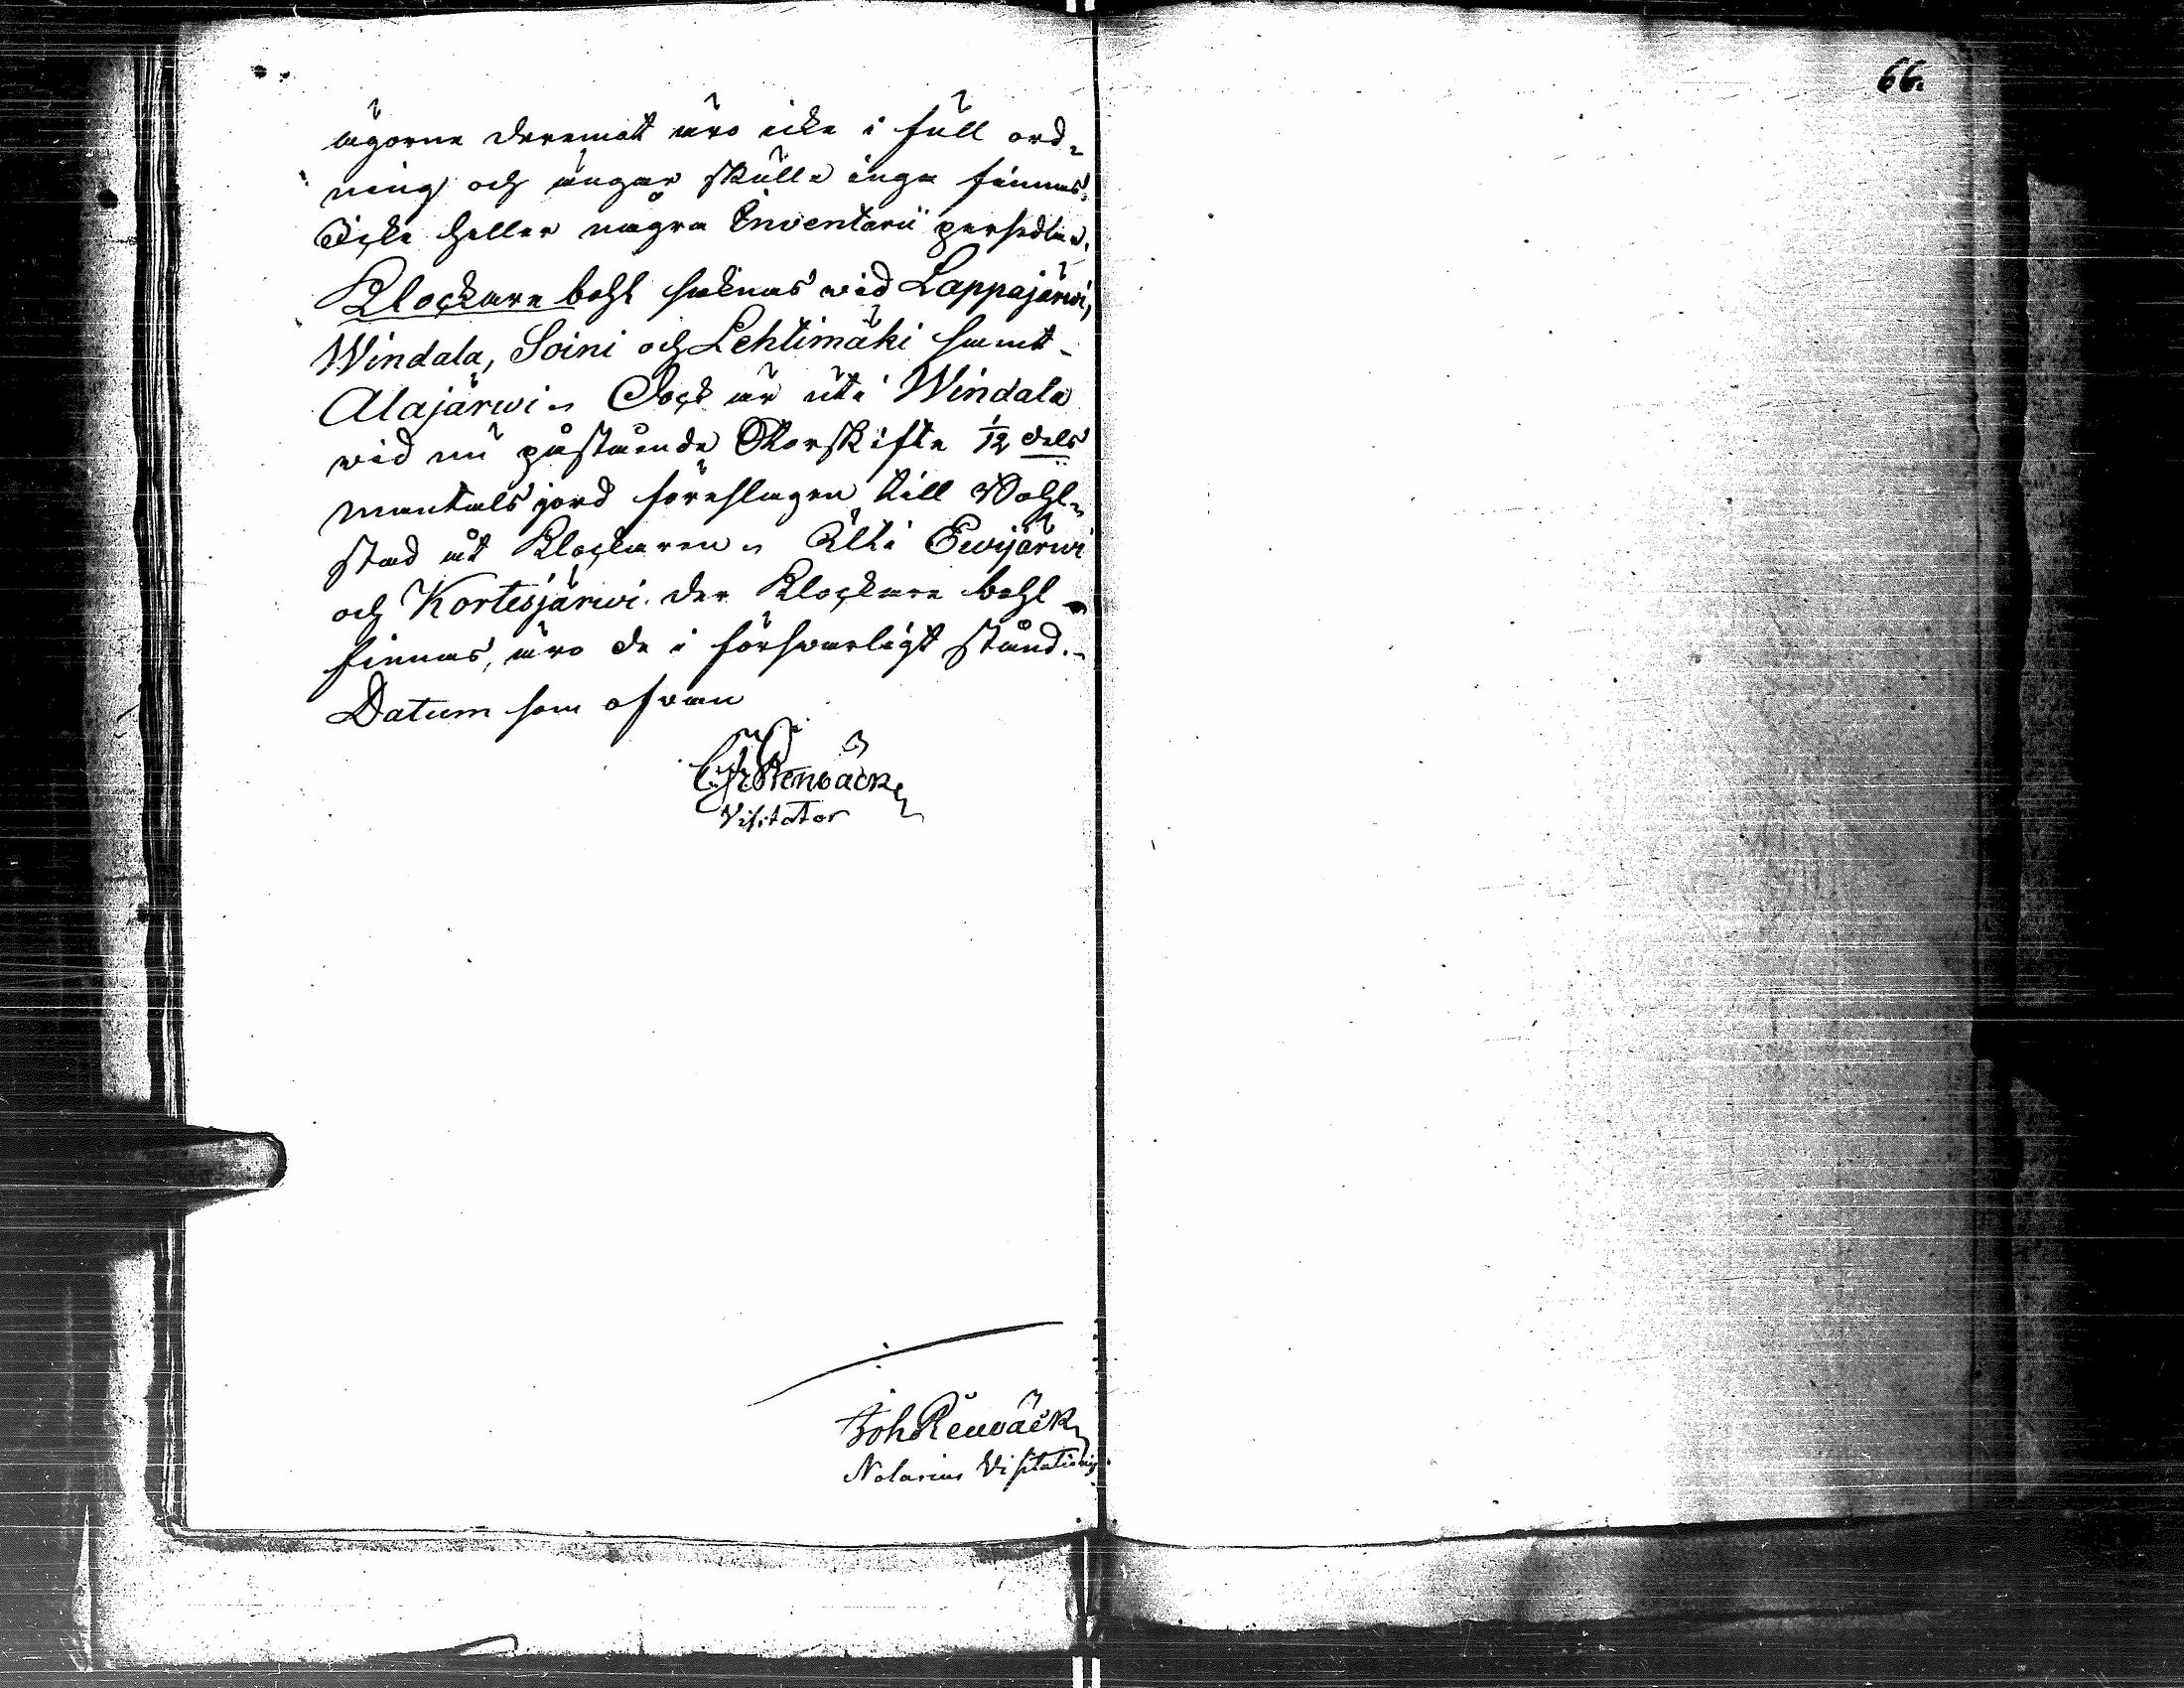 66.
ägorne deremott äro icke i full ord-
ning och ängar skulle inga finnas,
Icke heller några Inventarii persedlar.
Klockare bohl saknas wid Lappajärwi,
Windala, Soini och Lehtimäki samt
Alajärwi. Dock är uti Windala
wid nu påstående Storskifte 1/12 dels
mantals jord föreslagen till Bohl-
stad åt Klockaren. Uti Ewijärwi
och Kortesjärwi der Klockare bohl
finnas, äro de i försvarligt stånd.
Datum som ofvan
Renwäck
Visitator
Joh Renwäck
Notarius Visitationis